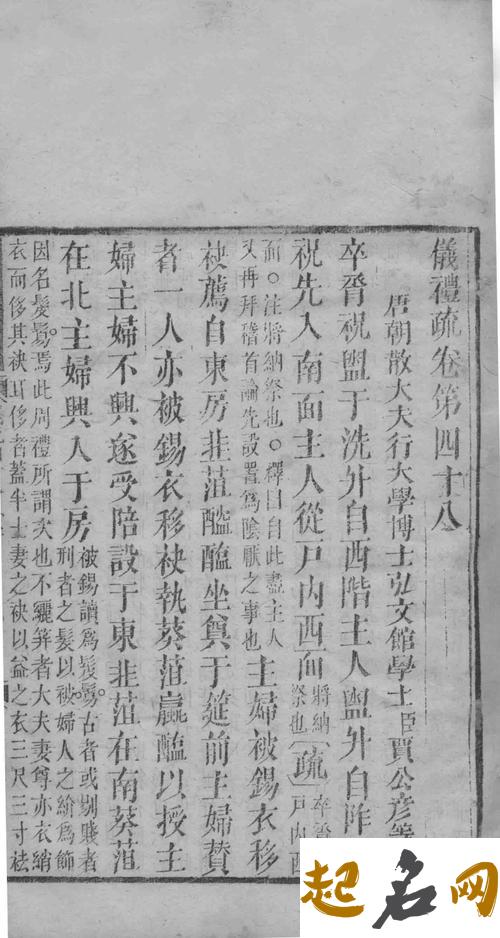 儀禮疏卷第四十八
唐朝散大夫行大學博士弘文館學士臣賈公彥等
卒脀祝盥于洗升自西階主人盥升自阼
祝先入南面主人從戶內西面將納祭也〔疏〕卒脀戶內西
面○注將納祭也○釋曰自此盡主人
又再拜稽首論先設置爲陰厭之事也主婦被錫衣移
袂薦自東房韭菹醓醢坐奠于筵前主婦贊
者一人亦被錫衣移袂執葵菹蠃醢以授主
婦主婦不興遂受陪設于東韭菹在南葵菹
在北主婦興入于房被錫讀爲髲鬄古者或剔賤者
刑者之髮以被婦人之紒爲飾
因名髲鬄焉此周禮所謂次也不纚笄者大夫妻尊亦衣綃
衣而侈其袂耳侈者蓋半士妻之袂以益之衣三尺三寸袪
起名网